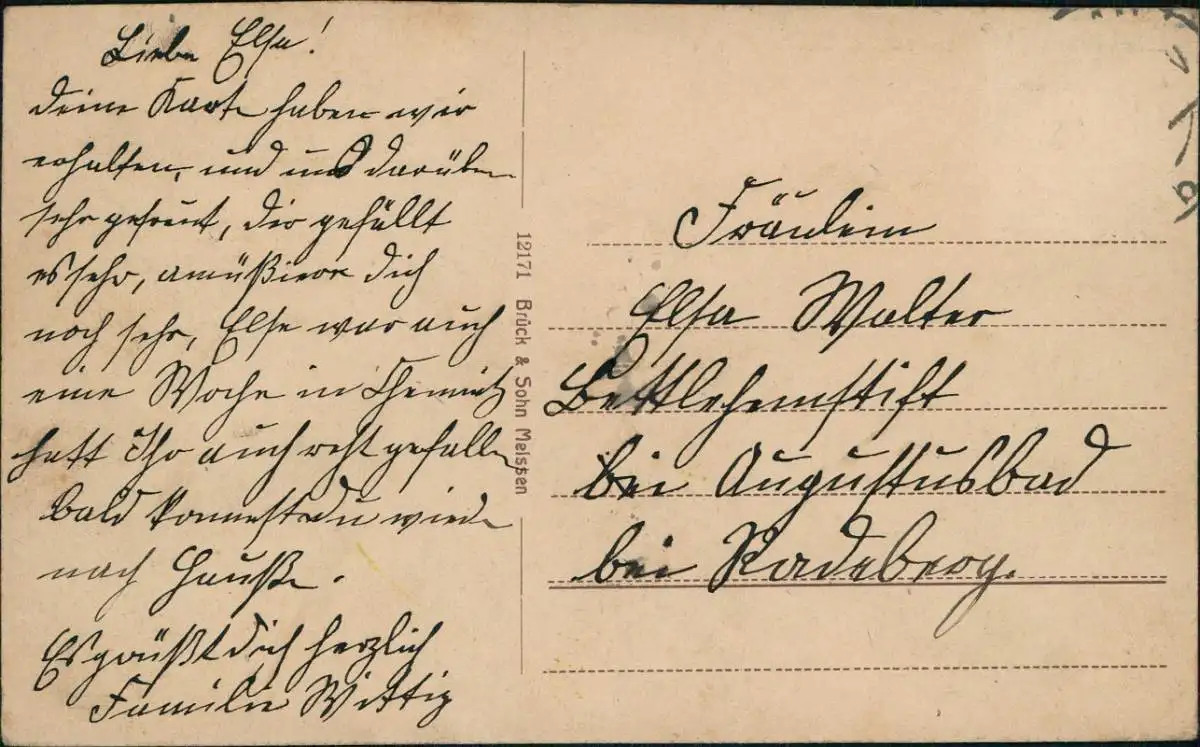 Liebe Elsa!
deine Karte haben wir
erhalten, und uns darüber
sehr gefreut, dir gefällt
es sehr, amüßiere dich
noch sehr, Else war auch
eine Woche in Chemnitz
hatt Ihr auch recht gefallen
bald kommest du wieder
nach Hauße.
Es grüßt dich herzlich
Familie Wittig
12171 Brück & Sohn Meissen
Fräulein
Elsa Walter
Bettlehemstift
bei Augustusbad
bei Radeberg.